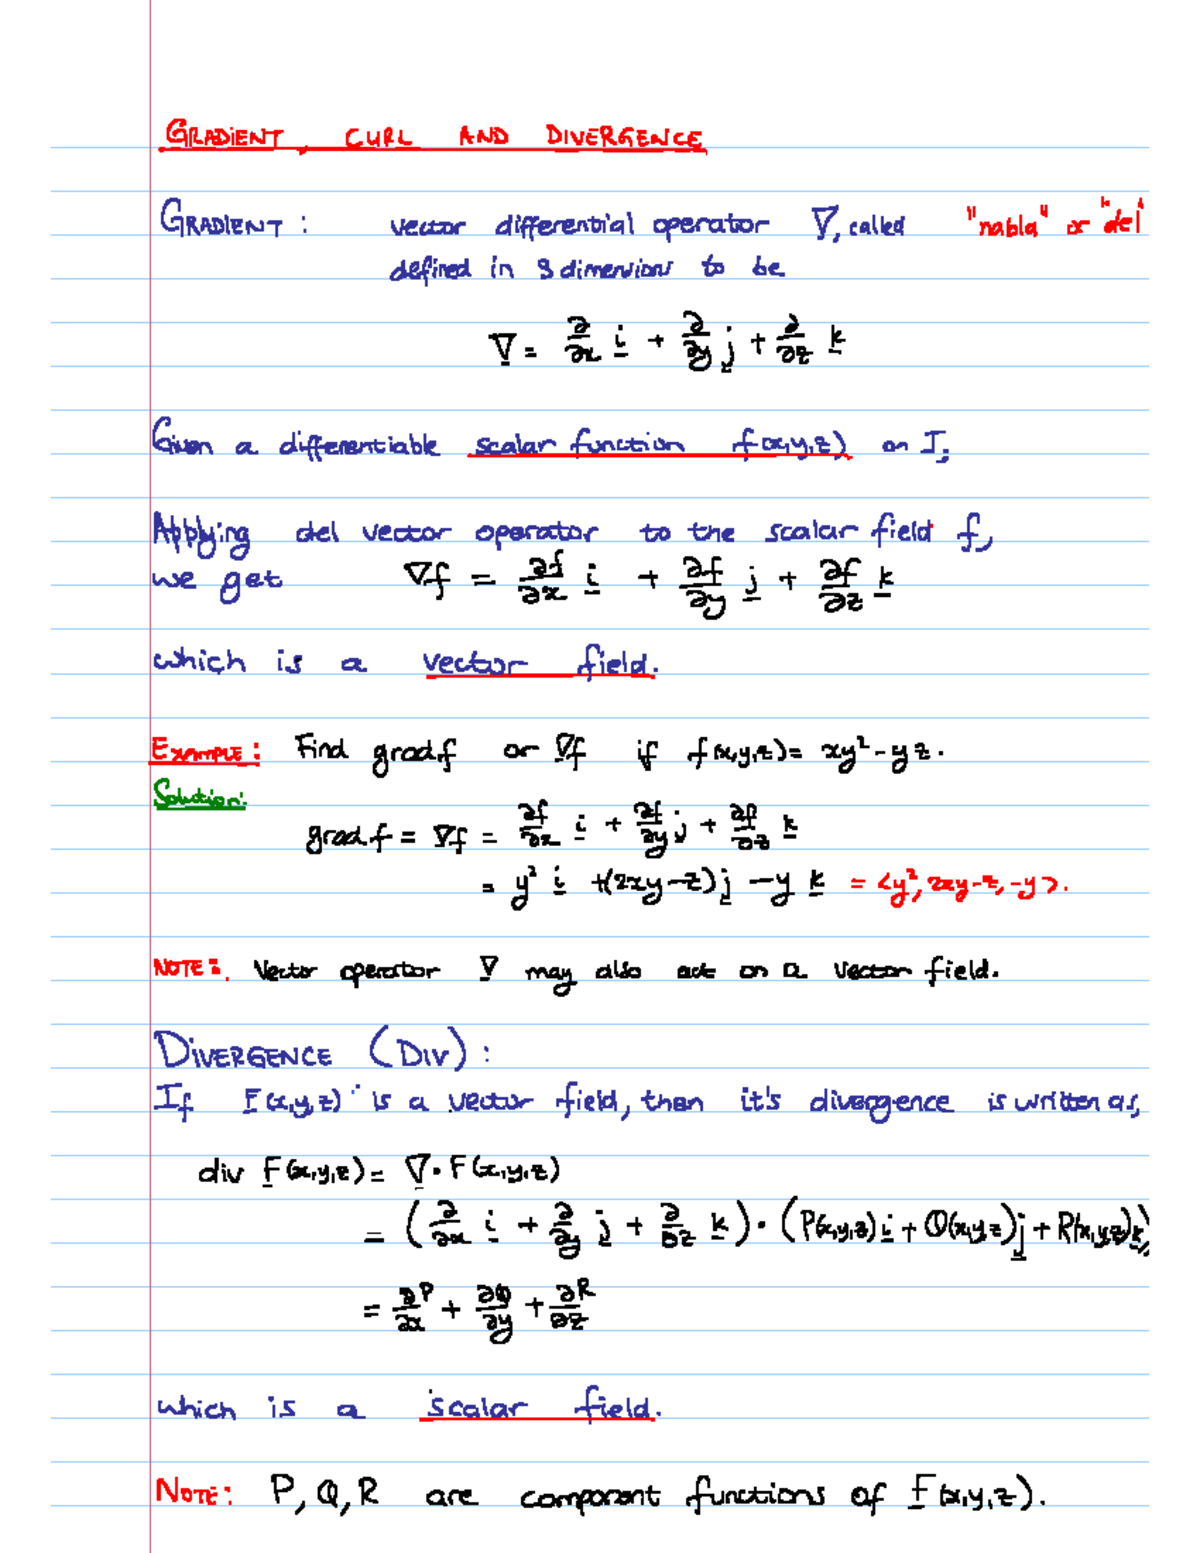 GRADIENT, CURL AND DIVERGENCE
GRADIENT: vector differential operator ∇, called "nabla" or "del"
defined in 3 dimensions to be
∇ = ∂/∂x i + ∂/∂y j + ∂/∂z k
Given a differentiable scalar function f(x,y,z) on I,
Applying del vector operator to the scalar field f,
we get ∇f = ∂f/∂x i + ∂f/∂y j + ∂f/∂z k
which is a vector field.
EXAMPLE: Find grad f or ∇f if f(x,y,z) = xy² - yz.
Solution:
grad f = ∇f = ∂f/∂x i + ∂f/∂y j + ∂f/∂z k
= y² i + (2xy-z) j - y k = <y², 2xy-z, -y>.
NOTE: Vector operator ∇ may also act on a vector field.
DIVERGENCE (DIV):
If F(x,y,z) is a vector field, then it's divergence is written as,
div F(x,y,z) = ∇·F(x,y,z)
= (∂/∂x i + ∂/∂y j + ∂/∂z k)·(P(x,y,z) i + Q(x,y,z) j + R(x,y,z) k)
= ∂P/∂x + ∂Q/∂y + ∂R/∂z
which is a scalar field.
NOTE: P, Q, R are component functions of F(x,y,z).